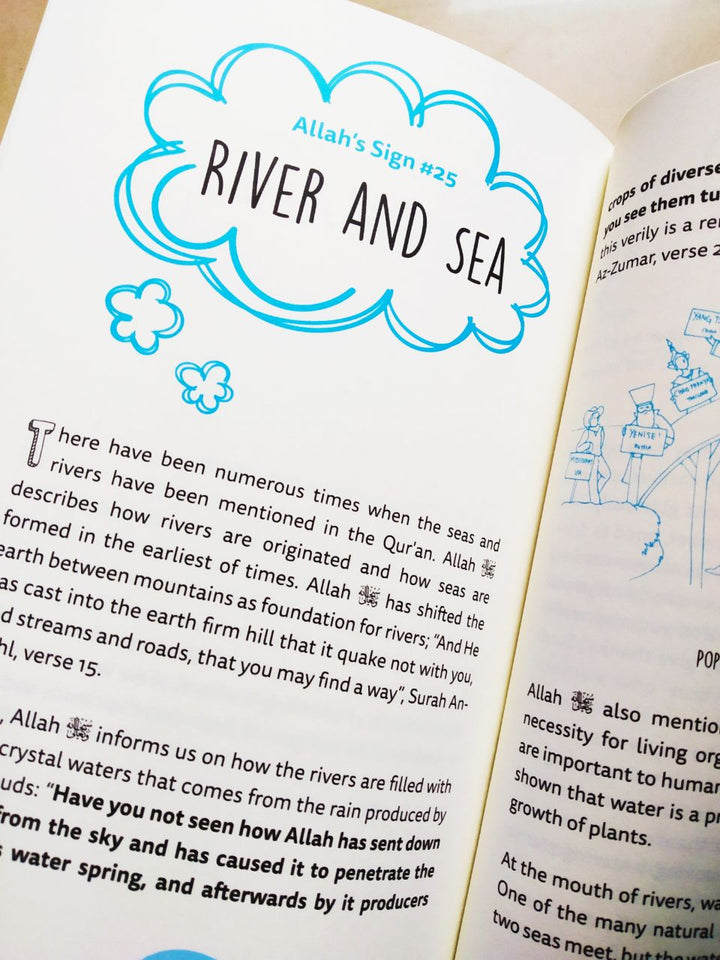 Allah's Sign #25
RIVER AND SEA
There have been numerous times when the seas and
rivers have been mentioned in the Qur'an. Allah ﷻ
describes how rivers are originated and how seas are
formed in the earliest of times. Allah ﷻ has shifted the
earth between mountains as foundation for rivers; "And He
as cast into the earth firm hill that it quake not with you,
d streams and roads, that you may find a way", Surah An-
hl, verse 15.
, Allah ﷻ informs us on how the rivers are filled with
crystal waters that comes from the rain produced by
uds: "Have you not seen how Allah has sent down
from the sky and has caused it to penetrate the
s water spring, and afterwards by it producers
crops of diverse
you see them tu
this verily is a re
Az-Zumar, verse 2
YANG T
YENISEI
RUSSIA
THAILAND
USA
POP
Allah ﷻ also mentio
necessity for living org
are important to human
shown that water is a pr
growth of plants.
At the mouth of rivers, wa
One of the many natural
two seas meet, but the wate